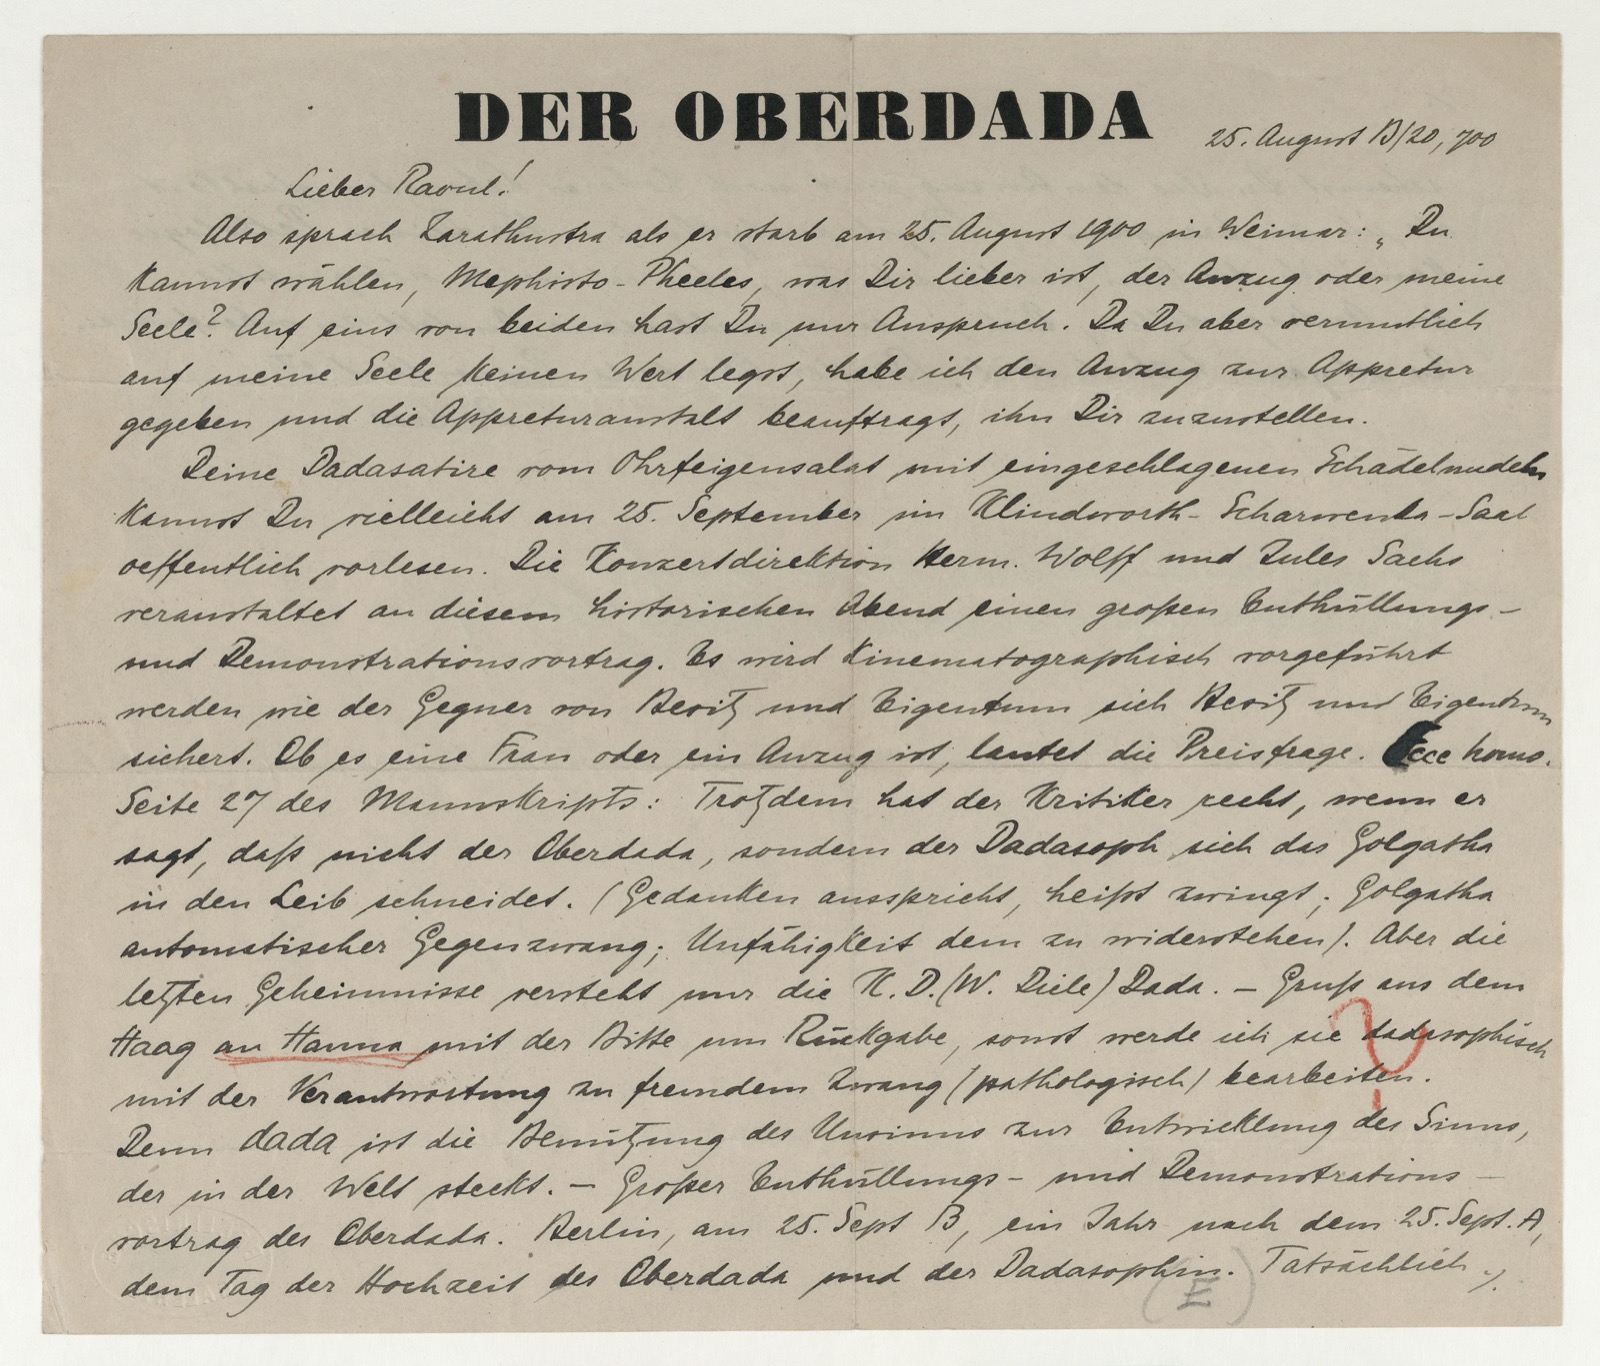 DER OBERDADA
25. August B/20, 700
Lieber Raoul!
Also sprach Zarathustra als er starb am 25. August 1900 in Weimar: „Du
kannst wählen, Mephisto-Pheeles, was Dir lieber ist, der Anzug oder meine
Seele? Auf eins von beiden hast Du nur Anspruch. Da Du aber vermutlich
auf meine Seele keinen Wert legst, habe ich den Anzug zur Appretur
gegeben und die Appreturanstalt beauftragt, ihn Dir zuzustellen.
Deine Dadasatire vom Ohrfeigensalat mit eingeschlagenen Schädelnudeln
kannst Du vielleicht am 25. September im Klindworth-Scharwenka-Saal
oeffentlich vorlesen. Die Konzertdirektion Herm. Wolff und Jules Sachs
veranstaltet an diesem historischen Abend einen großen Enthüllungs-
und Demonstrationsvortrag. Es wird kinematographisch vorgeführt
werden wie der Gegner von Besitz und Eigentum sich Besitz und Eigentum
sichert. Ob es eine Frau oder ein Anzug ist, lautet die Preisfrage. Ecce homo.
Seite 27 des Manuskripts: Trotzdem hat der Kritiker recht, wenn er
sagt, daß nicht der Oberdada, sondern der Dadasoph sich das Golgatha
in den Leib schneidet. (Gedanken ausspricht, heißt zwingt; Golgatha
automatischer Gegenzwang; Unfähigkeit dem zu widerstehen). Aber die
letzten Geheimnisse versteht nur die K. D. (W. Diele) Dada. – Gruß aus dem
Haag an Hanna mit der Bitte um Rückgabe, sonst werde ich sie dadasophisch
mit der Verantwortung zu fremdem Zwang (pathologisch) bearbeiten.
Denn dada ist die Benützung des Unsinns zur Entwicklung des Sinns,
der in der Welt steckt. – Großer Enthüllungs- und Demonstrations-
vortrag des Oberdada. Berlin, am 25. Sept B, ein Jahr nach dem 25. Sept. A,
dem Tag der Hochzeit des Oberdada und der Dadasophin. Tatsächlich